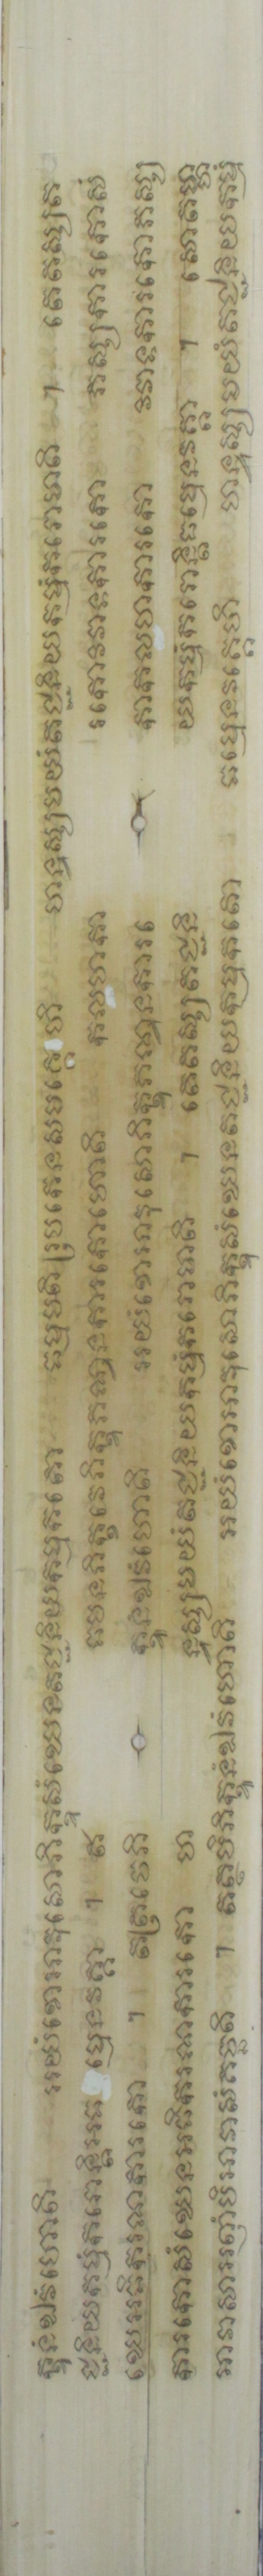 ក្ខូនំឯវំហោតិ អយំខោអាវុសោភិក្ខុសំឃេនតជ្ជនិយកម្មកតោ ធម្មបតិរូបកេនសមគ្គេហិ ហន្ទស្សមយំតជ្ជនិយកម្មំករោមាតិ ។ តេតស្សត
ជ្ជនិយកម្មំករោន្តិអធម្មេនវគ្គា ។ ឥធបនភិក្ខវេភិក្ខុភណ្ឌនការកោហោតិ កលហកា រកោវិវាទការកោ ភស្សការកោសំ
ឃេអធិករណការកោ ។ តត្រចេភិ ក្ខូនំឯវំហោតិ អយំខោអាវុសោភិក្ខុភណ្ឌនការ កោកលហការកោ វិវាទការកោភស្ស
ការកោសំឃេនអធិករណការកោ ហ ន្ទស្សមយំតជ្ជនិយកម្មំករោមាតិ ។ តេតស្សតជ្ជនិ យកម្មំករោន្តិធម្មេនវគ្គា ។ សោតម្ហា
អាវាសាអញ្ញំបិអាវាសំគច្ឆតិ ។ តត្ថបិភិក្ខូនំឯវំហោតិ អយំខោអាវុសោភិក្ខុសំឃេនតជ្ជនិយកម្មកតោ ធម្មេនវគ្គេហិ ហន្ទស្សមយំតជ្ជនិយកម្មំ